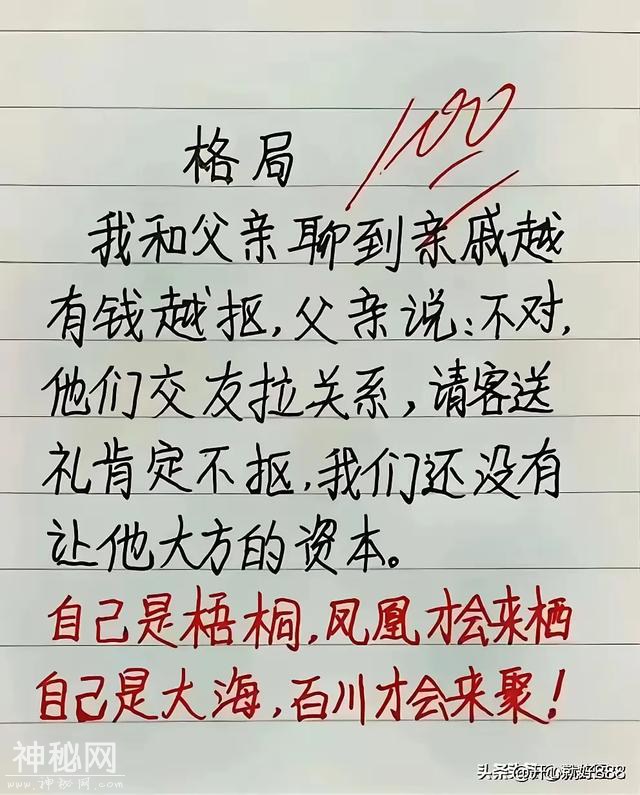 100
格局
我和父亲聊到亲戚越
有钱越抠，父亲说：不对，
他们交友拉关系，请客送
礼肯定不抠，我们还没有
让他大方的资本。
自己是梧桐，凤凰才会来栖
自己是大海，百川才会来聚！
神秘网
WWW.SHENMIW.COM
头条 @开心就好888